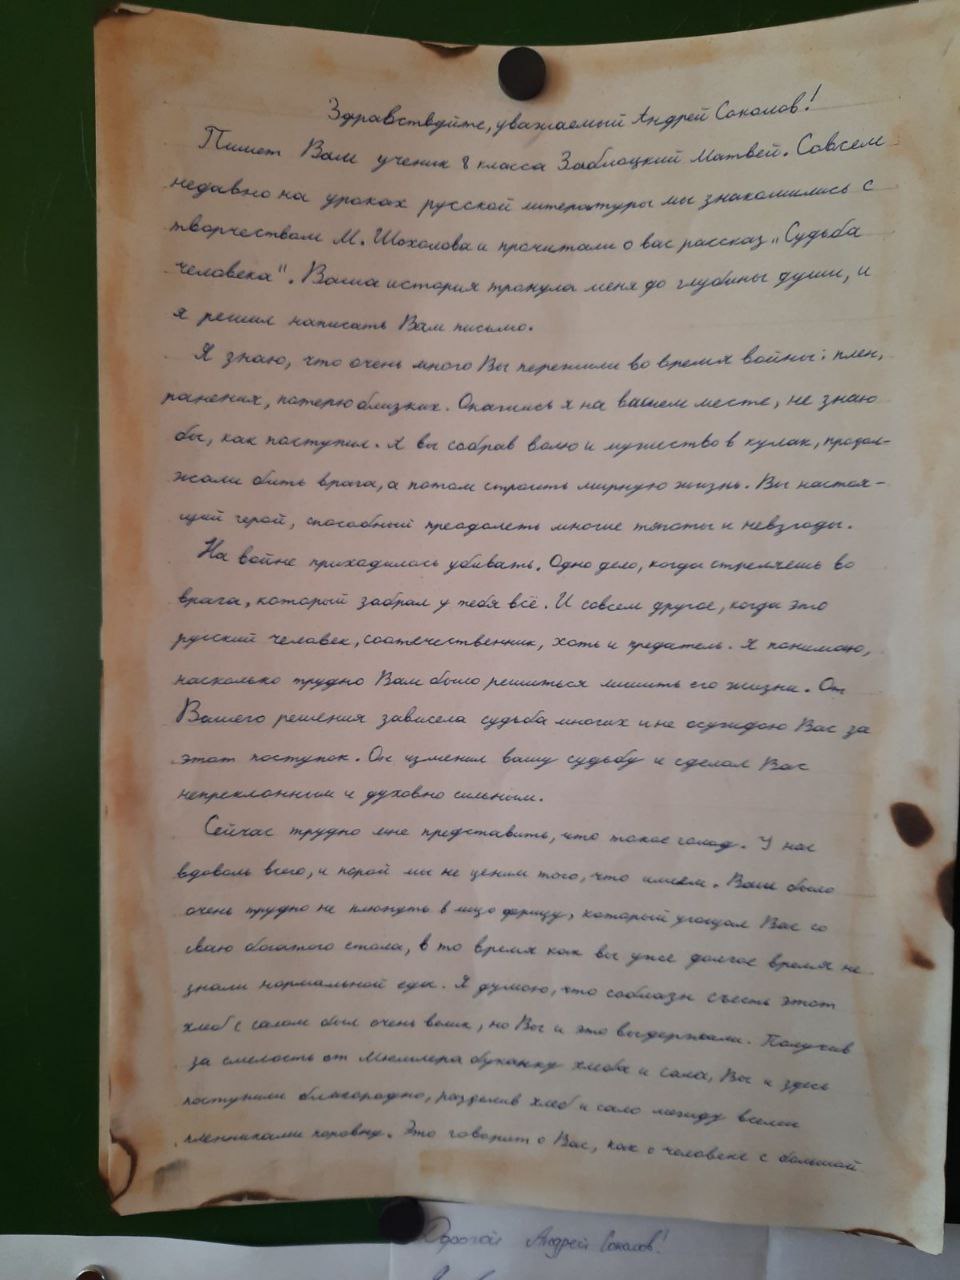 Здравствуйте, уважаемый Андрей Соколов!
Пишет Вам ученик 8 класса Заблоцкий Матвей. Совсем
недавно на уроках русской литературы мы знакомились с
творчеством М. Шохолова и прочитали о вас рассказ „Судьба
человека". Ваша история тронула меня до глубины души, и
я решил написать Вам письмо.
Я знаю, что очень много Вы пережили во время войны: плен,
ранения, потерю близких. Окажись я на вашем месте, не знаю
бы, как поступил. А вы собрав волю и мужество в кулак, продол-
жали бить врага, а потом строить мирную жизнь. Вы настоя-
щий герой, способный преодолеть многие тяготы и невзгоды.
На войне приходилось убивать. Одно дело, когда стреляешь во
врага, который забрал у тебя всё. И совсем другое, когда это
русский человек, соотечественник, хоть и предатель. Я понимаю,
насколько трудно Вам было решиться лишить его жизни. От
Вашего решения зависела судьба многих и не осуждаю Вас за
этот поступок. Он изменил вашу судьбу и сделал Вас
непреклонным и духовно сильным.
Сейчас трудно мне представить, что такое голод. У нас
вдоволь всего, и порой мы не ценим того, что имеем. Вам было
очень трудно не плюнуть в лицо фрицу, который угощал Вас со
сваю богатого стола, в то время как вы уже долгое время не
знали нормальной еды. Я думаю, что соблазн съесть этот
хлеб с салом был очень велик, но Вы и это выдержали. Получив
за смелость от Мюллера буханку хлеба и сала, Вы и здесь
поступили благородно, разделив хлеб и сало между всеми
пленниками поровну. Это говорит о Вас, как о человеке с большой
Дорогой Андрей Соколов!